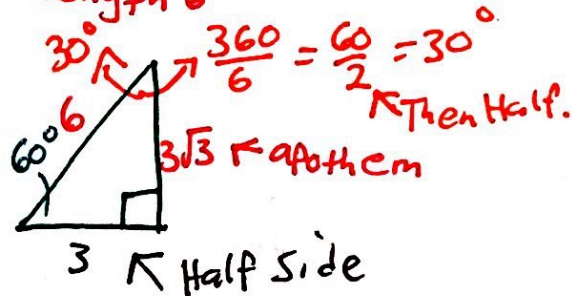 30° 360/6 = 60/2 = 30°
Then Half.
60° 6
3√3 apothem
3 Half Side